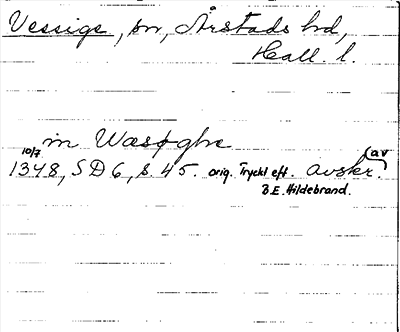 Vessige, sn, Årstads hd,
Hall. l.
in Wæsøghe
10/7 1348, SD 6, s. 45. orig. Tryckt eft. avskr. (av
B.E. Hildebrand.